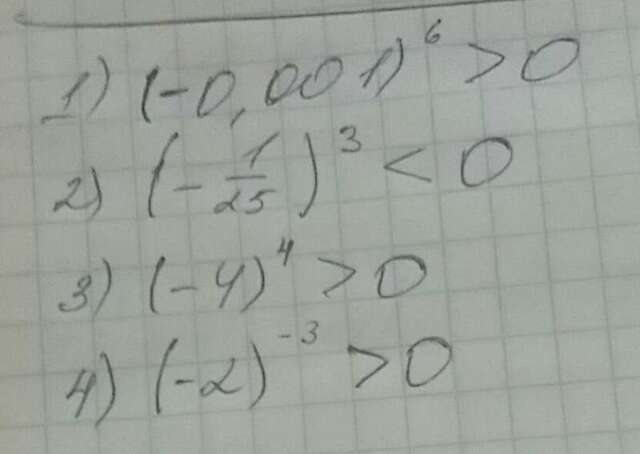 1) (-0,001)⁶ > 0
2) (-1/25)³ < 0
3) (-4)⁴ > 0
4) (-2)⁻³ > 0